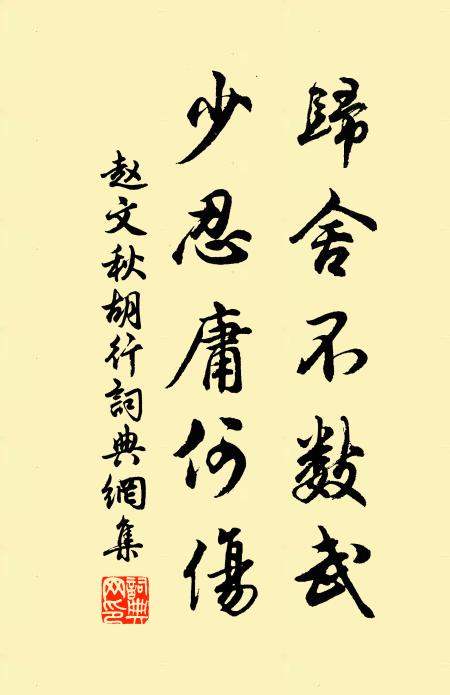 歸舍不數武
少忍庸何傷
赵文秋胡行詞典網集
詞典网印